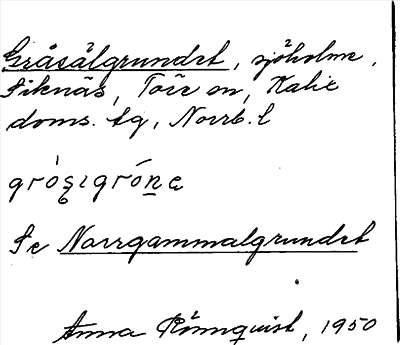 Gråsälgrundet, sjöholme,
Siknäs, Töre sn, Kalix
doms. tg, Norrb. l
gró
Se Norrgammalgrundet
Anna Rönnquist, 1950